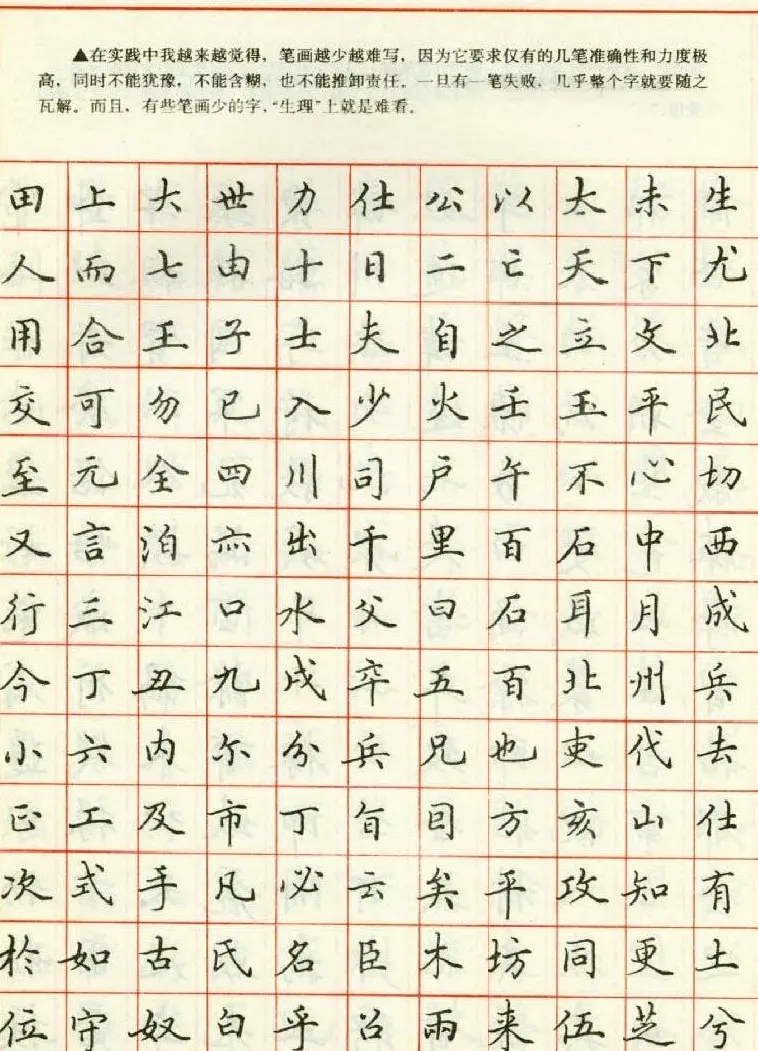 ▲在实践中我越来越觉得，笔画越少越难写，因为它要求仅有的几笔准确性和力度极
高，同时不能犹豫，不能含糊，也不能推卸责任。一旦有一笔失败，几乎整个字就要随之
瓦解。而且，有些笔画少的字，“生理”上就是难看。
田上大世力仕公以太未生
人而七由十日二亡天下尤
用合王子士夫自之立文北
交可勿已入少火壬玉平民
至元全四川司户午不心切
又言泊亦出干里百石中西
行三江口水父曰石耳月成
今丁丑九戌卒五百北州兵
小六内尔分兵兄也吏代去
正工及市丁旨目方亥山仕
次式手凡必云矣平攻知有
於如古氏名臣木坊同更土
位守奴白乎召雨来伍芝兮